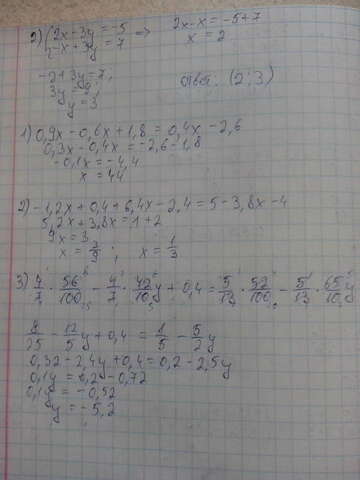 2) { 2x-3y = -5 => 2x-x = -5+7
-x+3y = 7 x = 2
-2+3y=7, ответ. (2;3)
3y = 9,
y = 3
1) 0,9x - 0,6x + 1,8 = 0,4x - 2,6
0,3x - 0,4x = -2,6 - 1,8
-0,1x = -4,4
x = 44
2) -1,2x + 0,4 + 6,4x - 2,4 = 5 - 3,8x - 4
5,2x + 3,8x = 1 + 2
9x = 3
x = 3/9 ; x = 1/3
3) 4/7 · 56/100 - 4/7 · 42/10 y + 0,4 = 5/13 · 52/100 - 5/13 · 65/10 y
8/25 - 12/5 y + 0,4 = 1/5 - 5/2 y
0,32 - 2,4y + 0,4 = 0,2 - 2,5y
0,1y = 0,2 - 0,72
0,1y = -0,52
y = -5,2